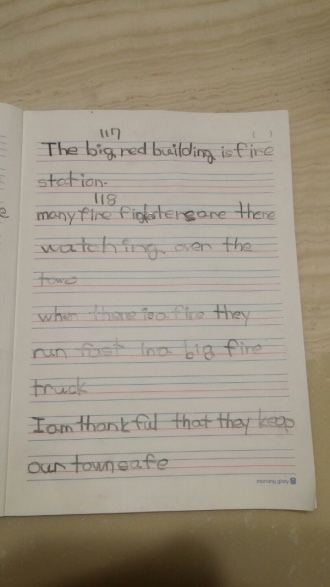 117
The big red building is fire
station.
118
many fire fighters are there
watching over the
town
when there is a fire they
run fast in a big fire
truck
I am thankful that they keep
our town safe
morning glory